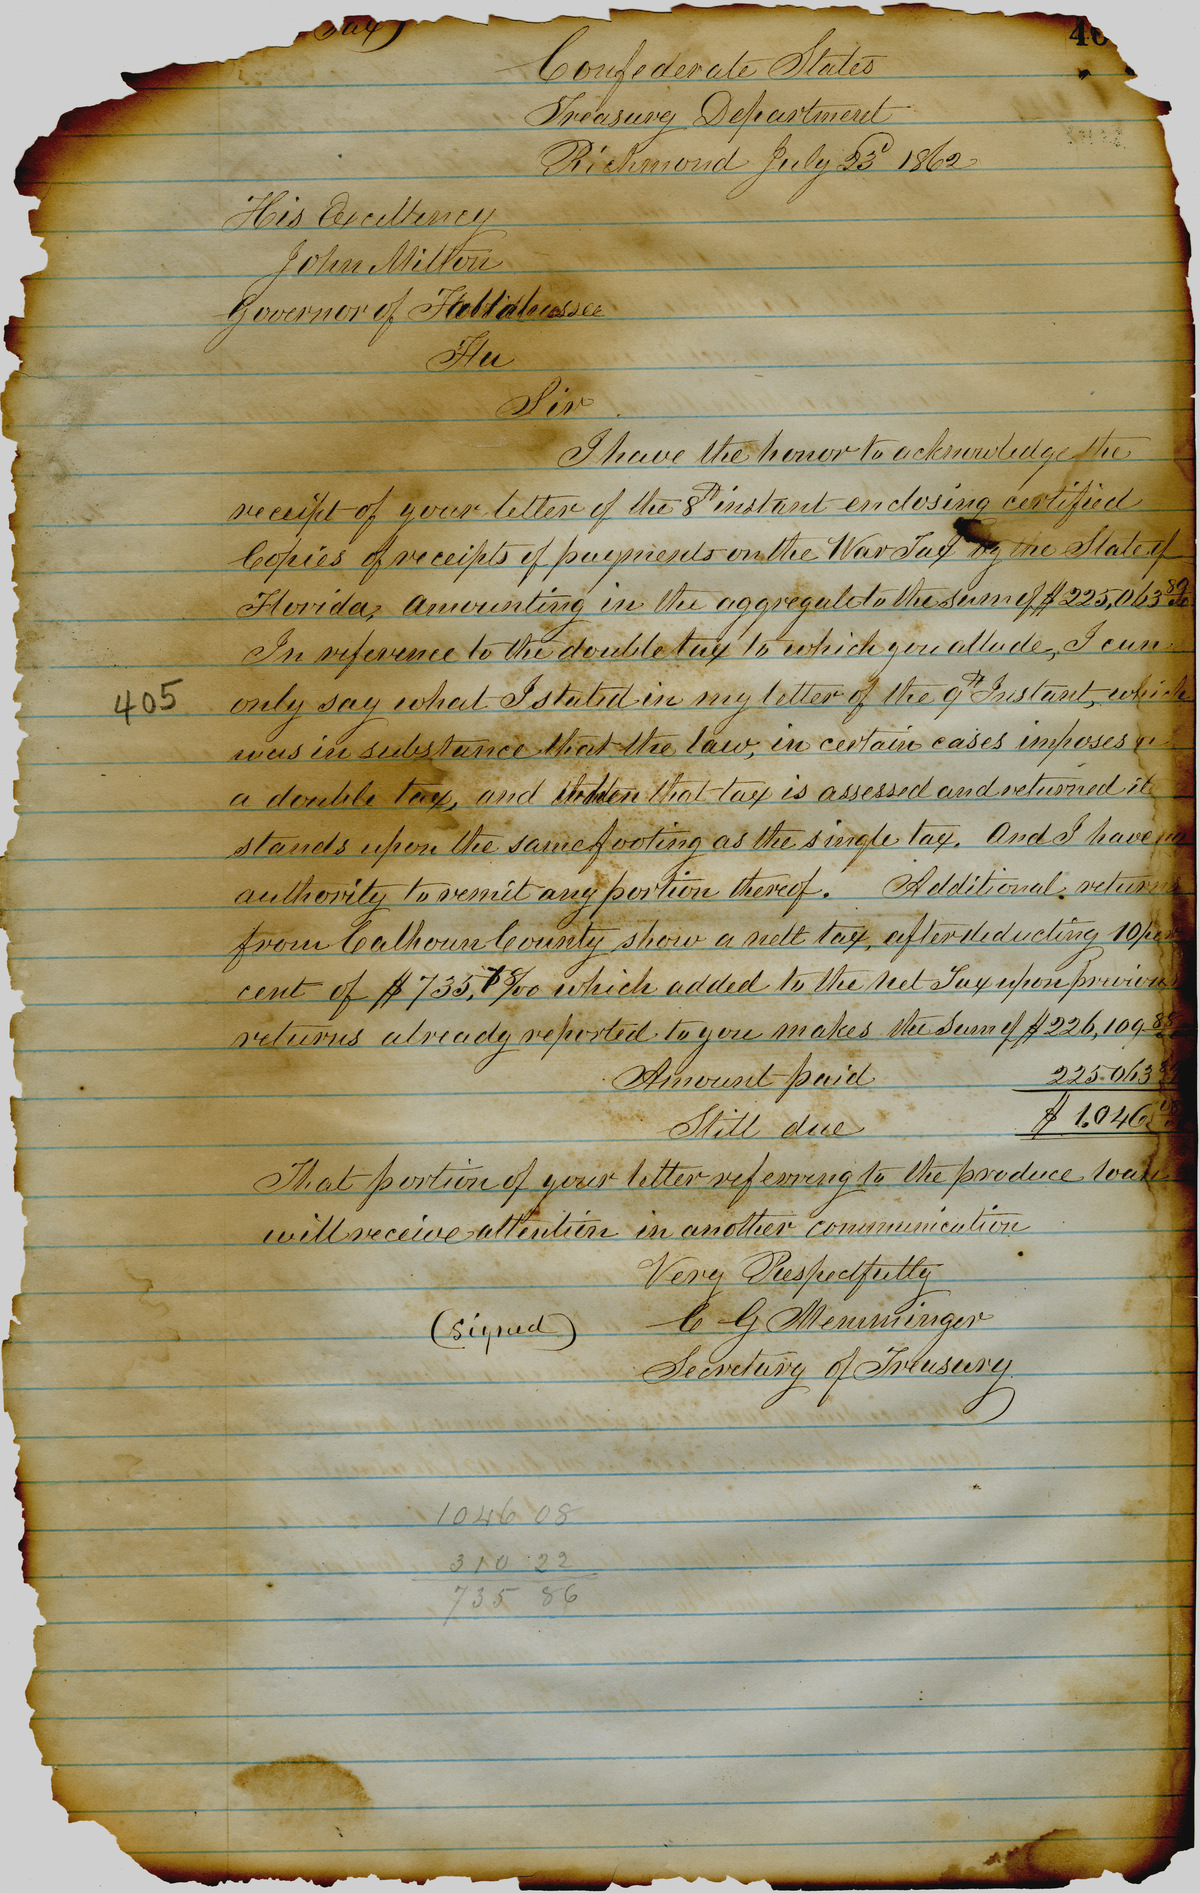 Tax)
40
Confederate States
Treasury Department
Richmond July 23d 1862
His Excellency
John Milton
Governor of Tallahassee
Fla
Sir
I have the honor to acknowledge the
receipt of your letter of the 8th instant enclosing certified
Copies of receipts of payments on the War Tax by the State of
Florida, Amounting in the aggregate to the sum of $225,063 89
In reference to the double tax to which you allude, I can
405
only say what I stated in my letter of the 9th Instant, which
was in substance that the law, in certain cases imposes a
a double tax, and when that tax is assessed and returned it
stands upon the same footing as the single tax. And I have no
authority to remit any portion thereof. Additional returns
from Calhoun County show a nett tax, after deducting 10 per
cent of $735, which added to the net Tax upon previous
returns already reported to you makes the Sum of $226,109 88
Amount paid 225.063
Still due $1.046
That portion of your letter referring to the produce loan
will receive attention in another communication
Very Respectfully
(Signed) C G Memminger
Secretary of Treasury
1046 08
310 22
735 86